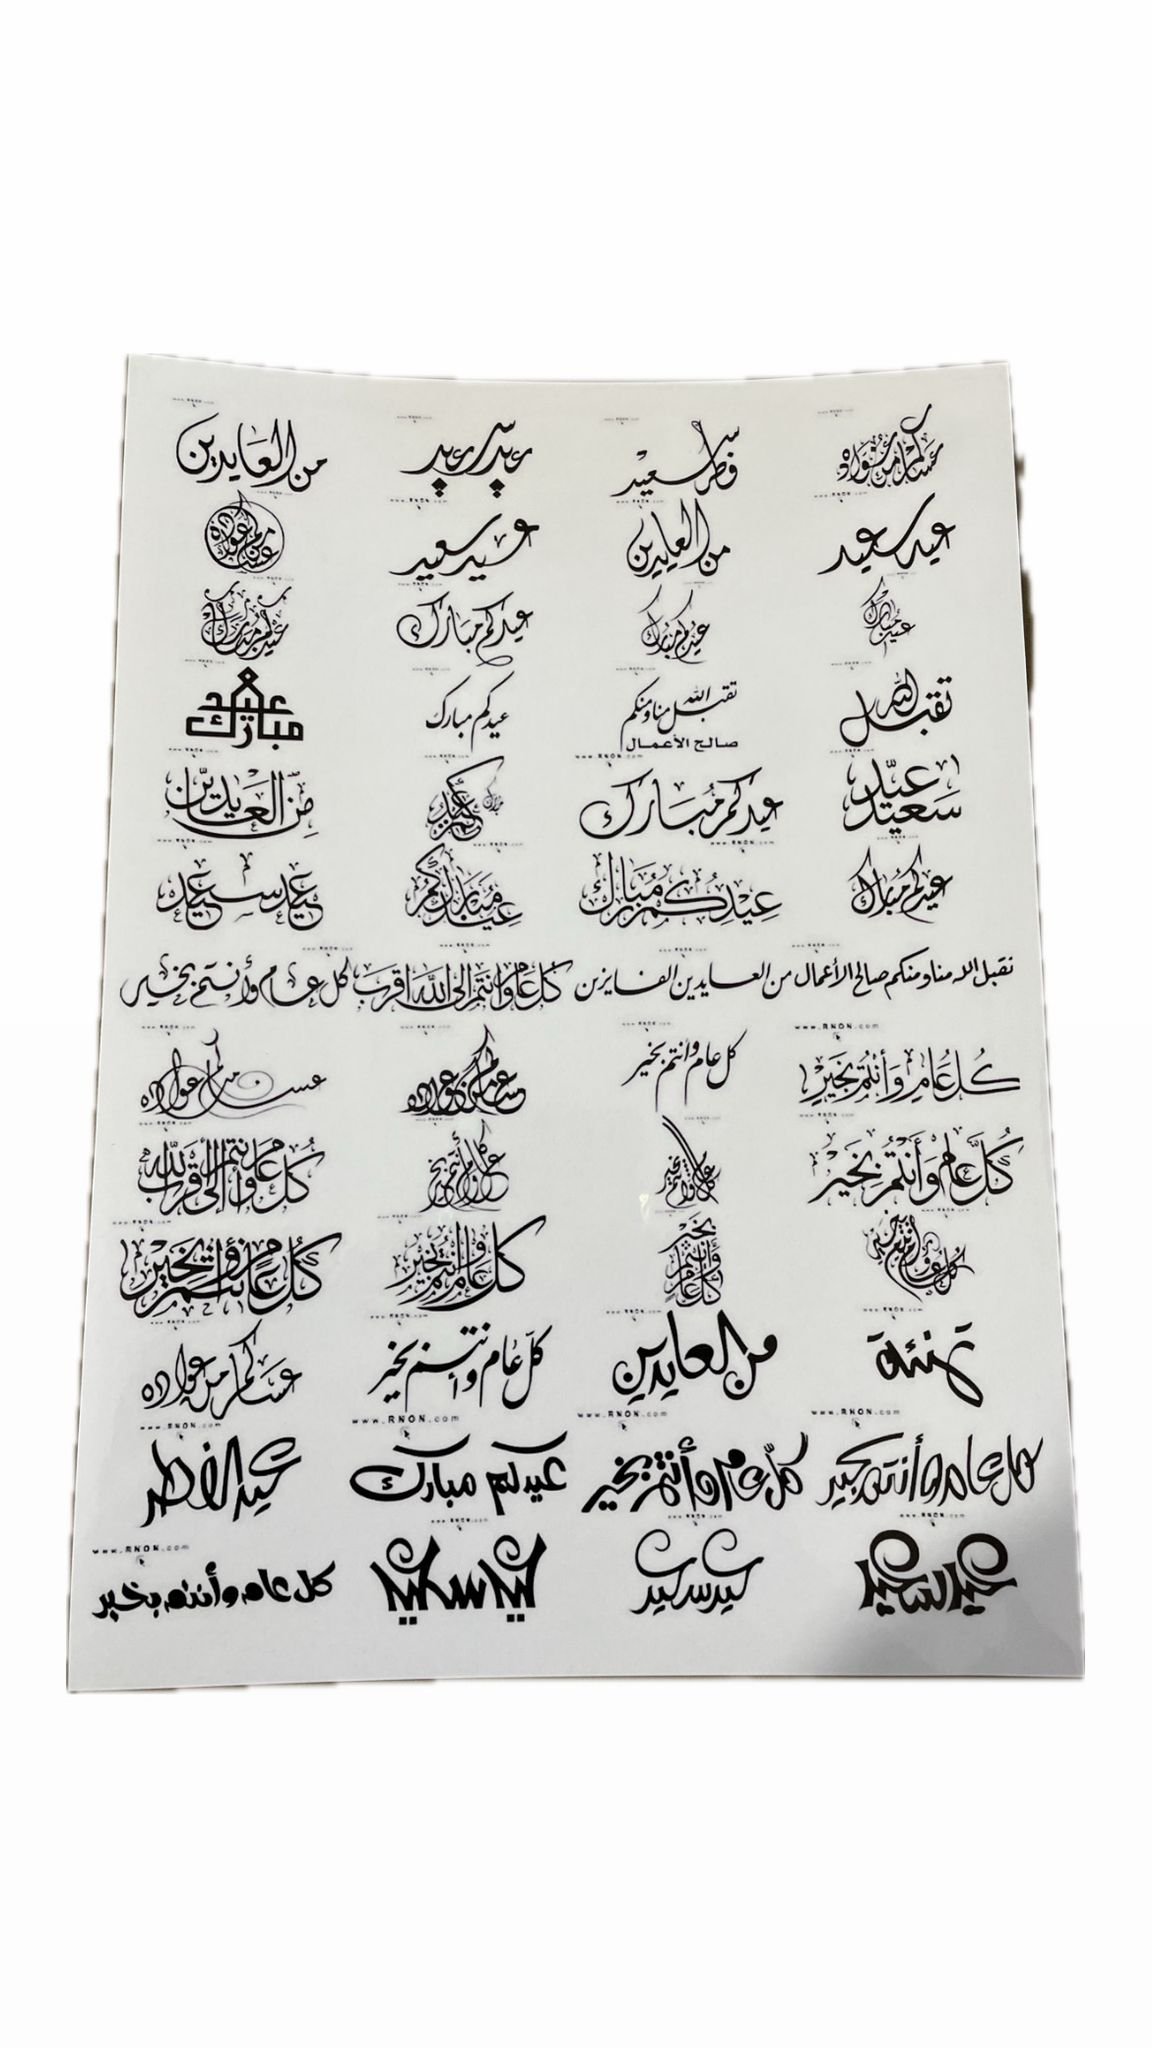 عساكم من عواده
فطر سعيد
عيد سعيد
من العايدين
عيد سعيد
من العايدين
عيد سعيد
عساكم من عواده
عيدكم مبارك
عيدكم مبارك
عيدكم مبارك
تقبل الله
تقبل الله منا ومنكم
صالح الأعمال
عيدكم مبارك
عيد مبارك
عيد سعيد
عيدكم مبارك
مِن العايدين
عيدكم مبارك
عيدكم مبارك
عيدكم مبارك
عيد سعيد
تقبل الله منا ومنكم صالح الأعمال من العايدين الفايزين
كل عام وانتم الى الله اقرب
كل عام وأنتم بخير
كل عام وأنتم بخير
كل عام وانتم بخير
عساكم من عواده
عساكم من عواده
كل عام وأنتم بخير
كل عام وأنتم بخير
كل عام وأنتم بخير
كل عام وانتم الى الله اقرب
كل عام وأنتم بخير
كل عام وأنتم بخير
كل عام وأنتم بخير
تهنئة
من العايدين
كل عام وانتم بخير
عساكم من عواده
كل عام وأنتم بخير
كل عام وأنتم بخير
عيدكم مبارك
عيد الفطر
عيد سعيد
عيد سعيد
كل عام وأنتم بخير
www.RNON.com